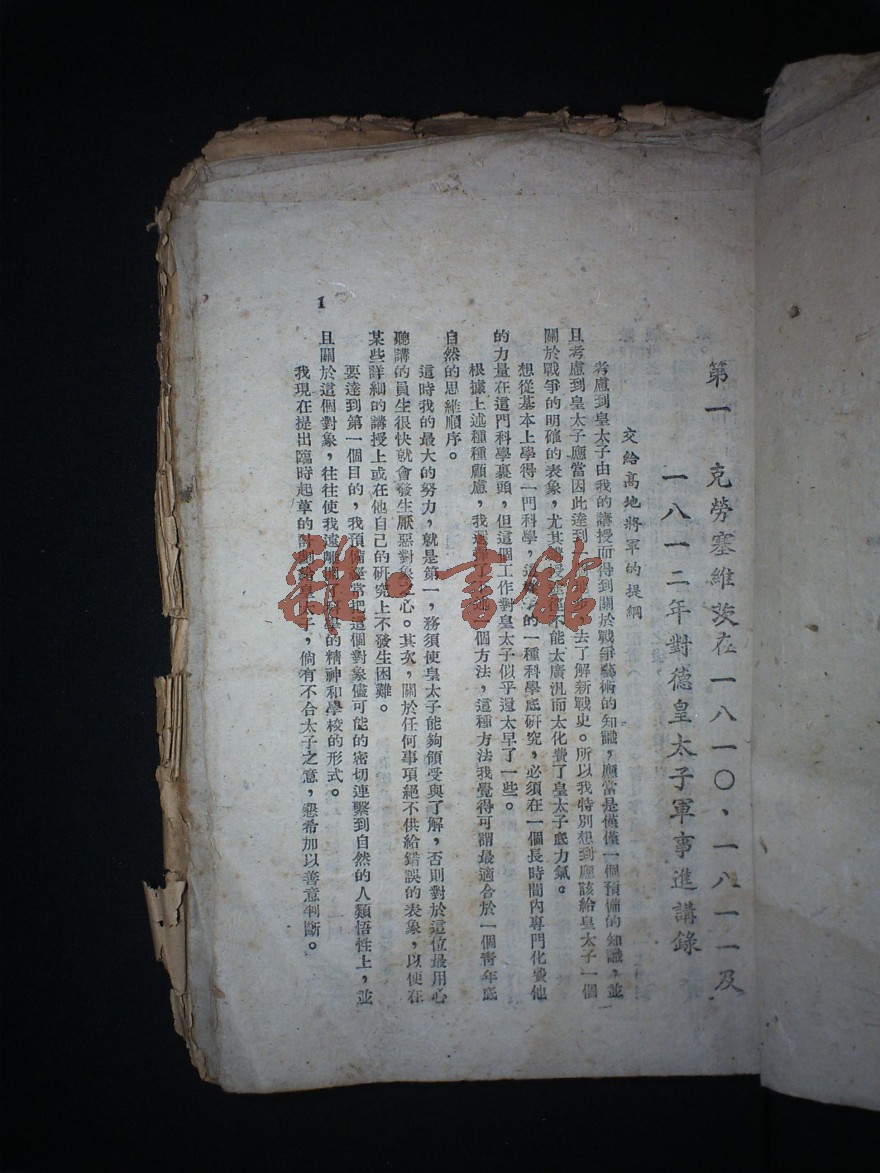 第一 克勞塞維茨在一八一〇、一八一一及
一八一二年對德皇太子軍事進講錄
交給高地將軍的提綱
考慮到皇太子由我的講授而得到關於戰爭藝術的知識,應當是僅僅一個預備的知識,並
且考慮到皇太子應當因此達到 去了解新戰史。所以我特別想到應該給皇太子一個
關於戰爭的明確的表象,尤其 不能太廣汎而太化費了皇太子底力氣。
想從基本上學得一門科學, 的一種科學底研究,必須在一個長時間內專門化費他
的力量在這門科學裏頭,但這個工作對皇太子似乎還太早了一些。
根據上述種種顧慮,我 個方法,這種方法我覺得可謂最適合於一個靑年底
自然的思維順序。
這時我的最大的努力,就是第一,務須使皇太子能夠領受與了解,否則對於這位最用心
聽講的員生很快就會發生厭惡對象之心。其次,關於任何事項絕不供給錯誤的表象,以使在
某些詳細的講授上或在他自己的研究上不發生困難。
要達到第一個目的,我預備經常把這個對象儘可能的密切連繫到自然的人類悟性上,並
且關於這個對象,往往使我遠離開了科學的精神和學校的形式。
我現在提出臨時起草的計劃給皇太子,倘有不合太子之意,懇希加以善意判斷。
1
雜·書館